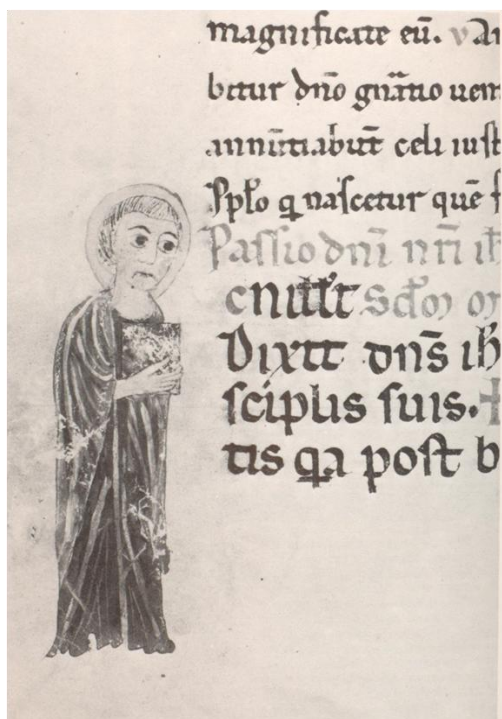 magnificate eū. v Ai
bitur dn̄o gn̄atio uen
annūtiabūt celi iust
Pplo q̄ nascetur quē f
Passio dn̄i nr̄i ih̄
Dixit dn̄s ih̄
sciplis suis. +
tis qa post b